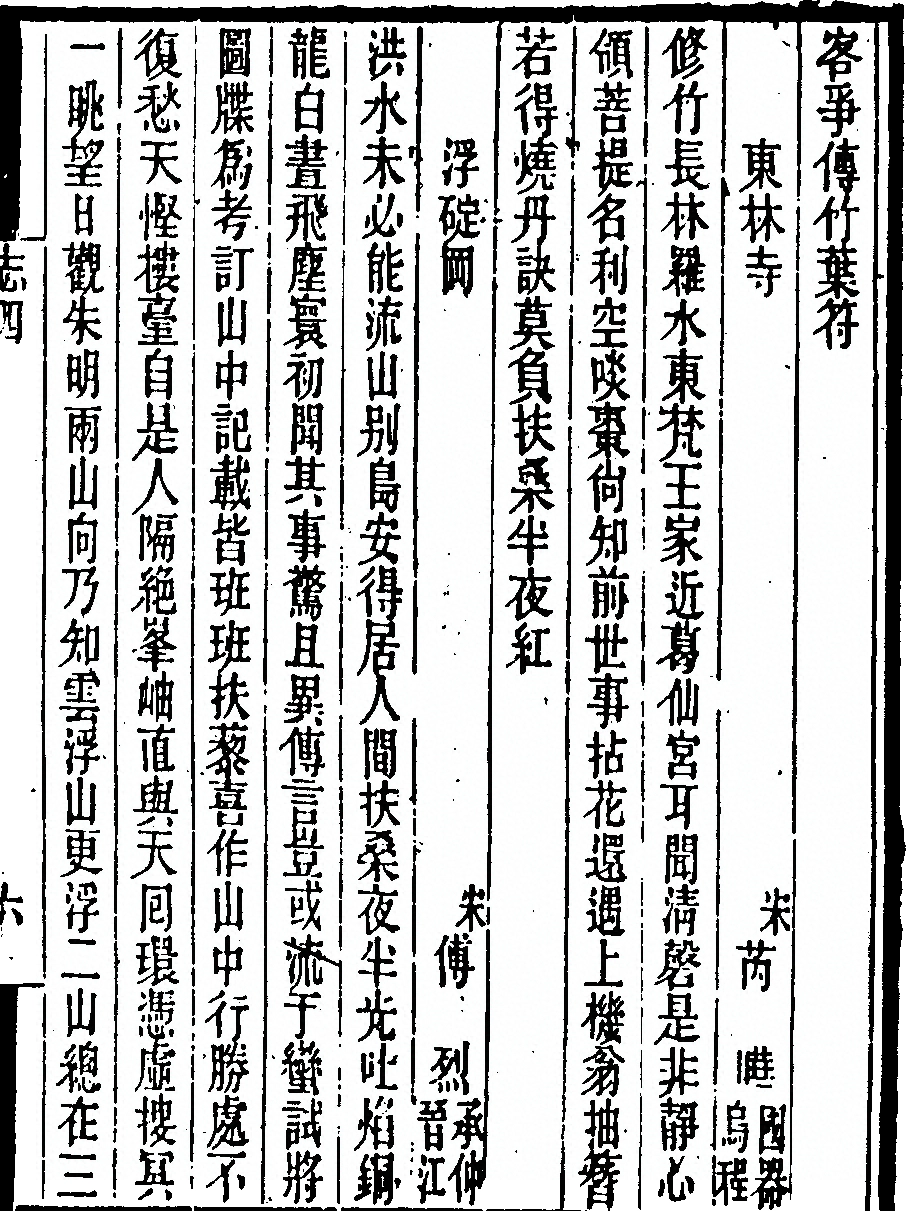 客爭傳竹葉符
東林寺 宋芮 㬀國器烏程
修竹長林羅水東梵王家近葛仙宮耳聞清磬是非靜心
領菩提名利空啖棗尙知前世事拈花還遇上機翁抽簪
若得燒丹訣莫負扶桑半夜紅
浮碇岡 宋傅 烈承仲晉江
洪水未必能流山别島安得居人間扶桑夜半光吐焰銅
龍白晝飛塵寰初聞其事驚且異傳言豈或流于蠻試將
圖牒爲考訂山中記載皆班班扶藜喜作山中行勝處不
復愁天慳樓臺自是人隔絶峯岫直與天回環憑虛搜冥
一眺望日觀朱明兩山向乃知雲浮山更浮二山總在三
志四
六